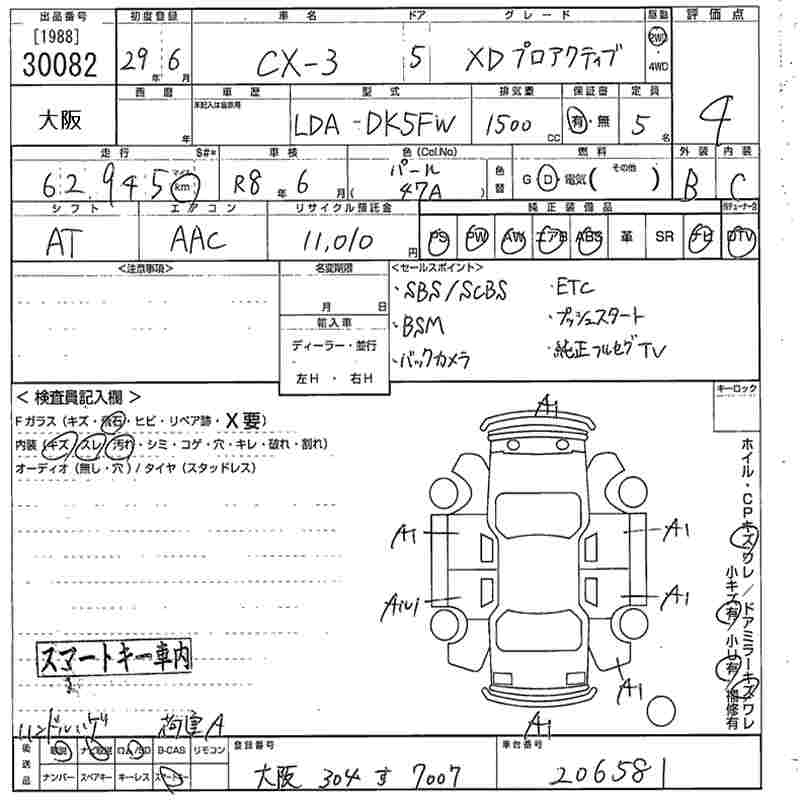 出品番号 初度登録 車名 ドア グレード 駆動 評価点
[1988]
30082 29年 6月 CX-3 5 XDプロアクティブ 2WD・4WD
西暦 車歴 型式 排気量 保証書 定員
未記入は自家用
大阪 年 LDA-DK5FW 1500CC 有・無 5名 4
走行 S#* 車検 色(Col.No) 燃料 外装 内装
62,945 マイル km R8年 6月 パール 色替 G D・電気( その他 ) B C
( 47A )
シフト エアコン リサイクル預託金 純正装備品
AT AAC 11,010円 PS PW AW エアB ABS 革 SR ナビ DTV
<注意事項> 名変期限 <セールスポイント>
月 日 ・SBS/SCBS ・ETC
輸入車 ・BSM ・プッシュスタート
ディーラー・並行 ・バックカメラ ・純正フルセグTV
左H ・ 右H
<検査員記入欄> キーロック
Fガラス(キズ・飛石・ヒビ・リペア跡・X要)
内装(キズ・スレ・汚れ・シミ・コゲ・穴・キレ・破れ・割れ)
オーディオ(無し・穴)/タイヤ(スタッドレス)
A1
A1 A1
AU1 A1
A1
A1
ホイル・CPキズワレ/ドアミラーキズ/ワレ
小キズ有/小U有/補修有
スマートキー車内
ハンドルハゲ 荷室A
後送品 取説 ナビ取説 ロム/SD B-CAS リモコン 登録番号 車台番号
ナンバー スペアキー キーレス スマートキー 大阪 304 す 7007 206581